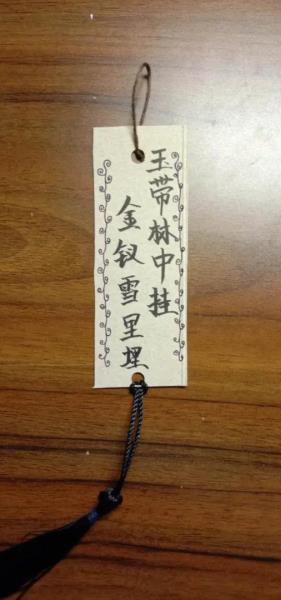 玉带林中挂
金钗雪里埋